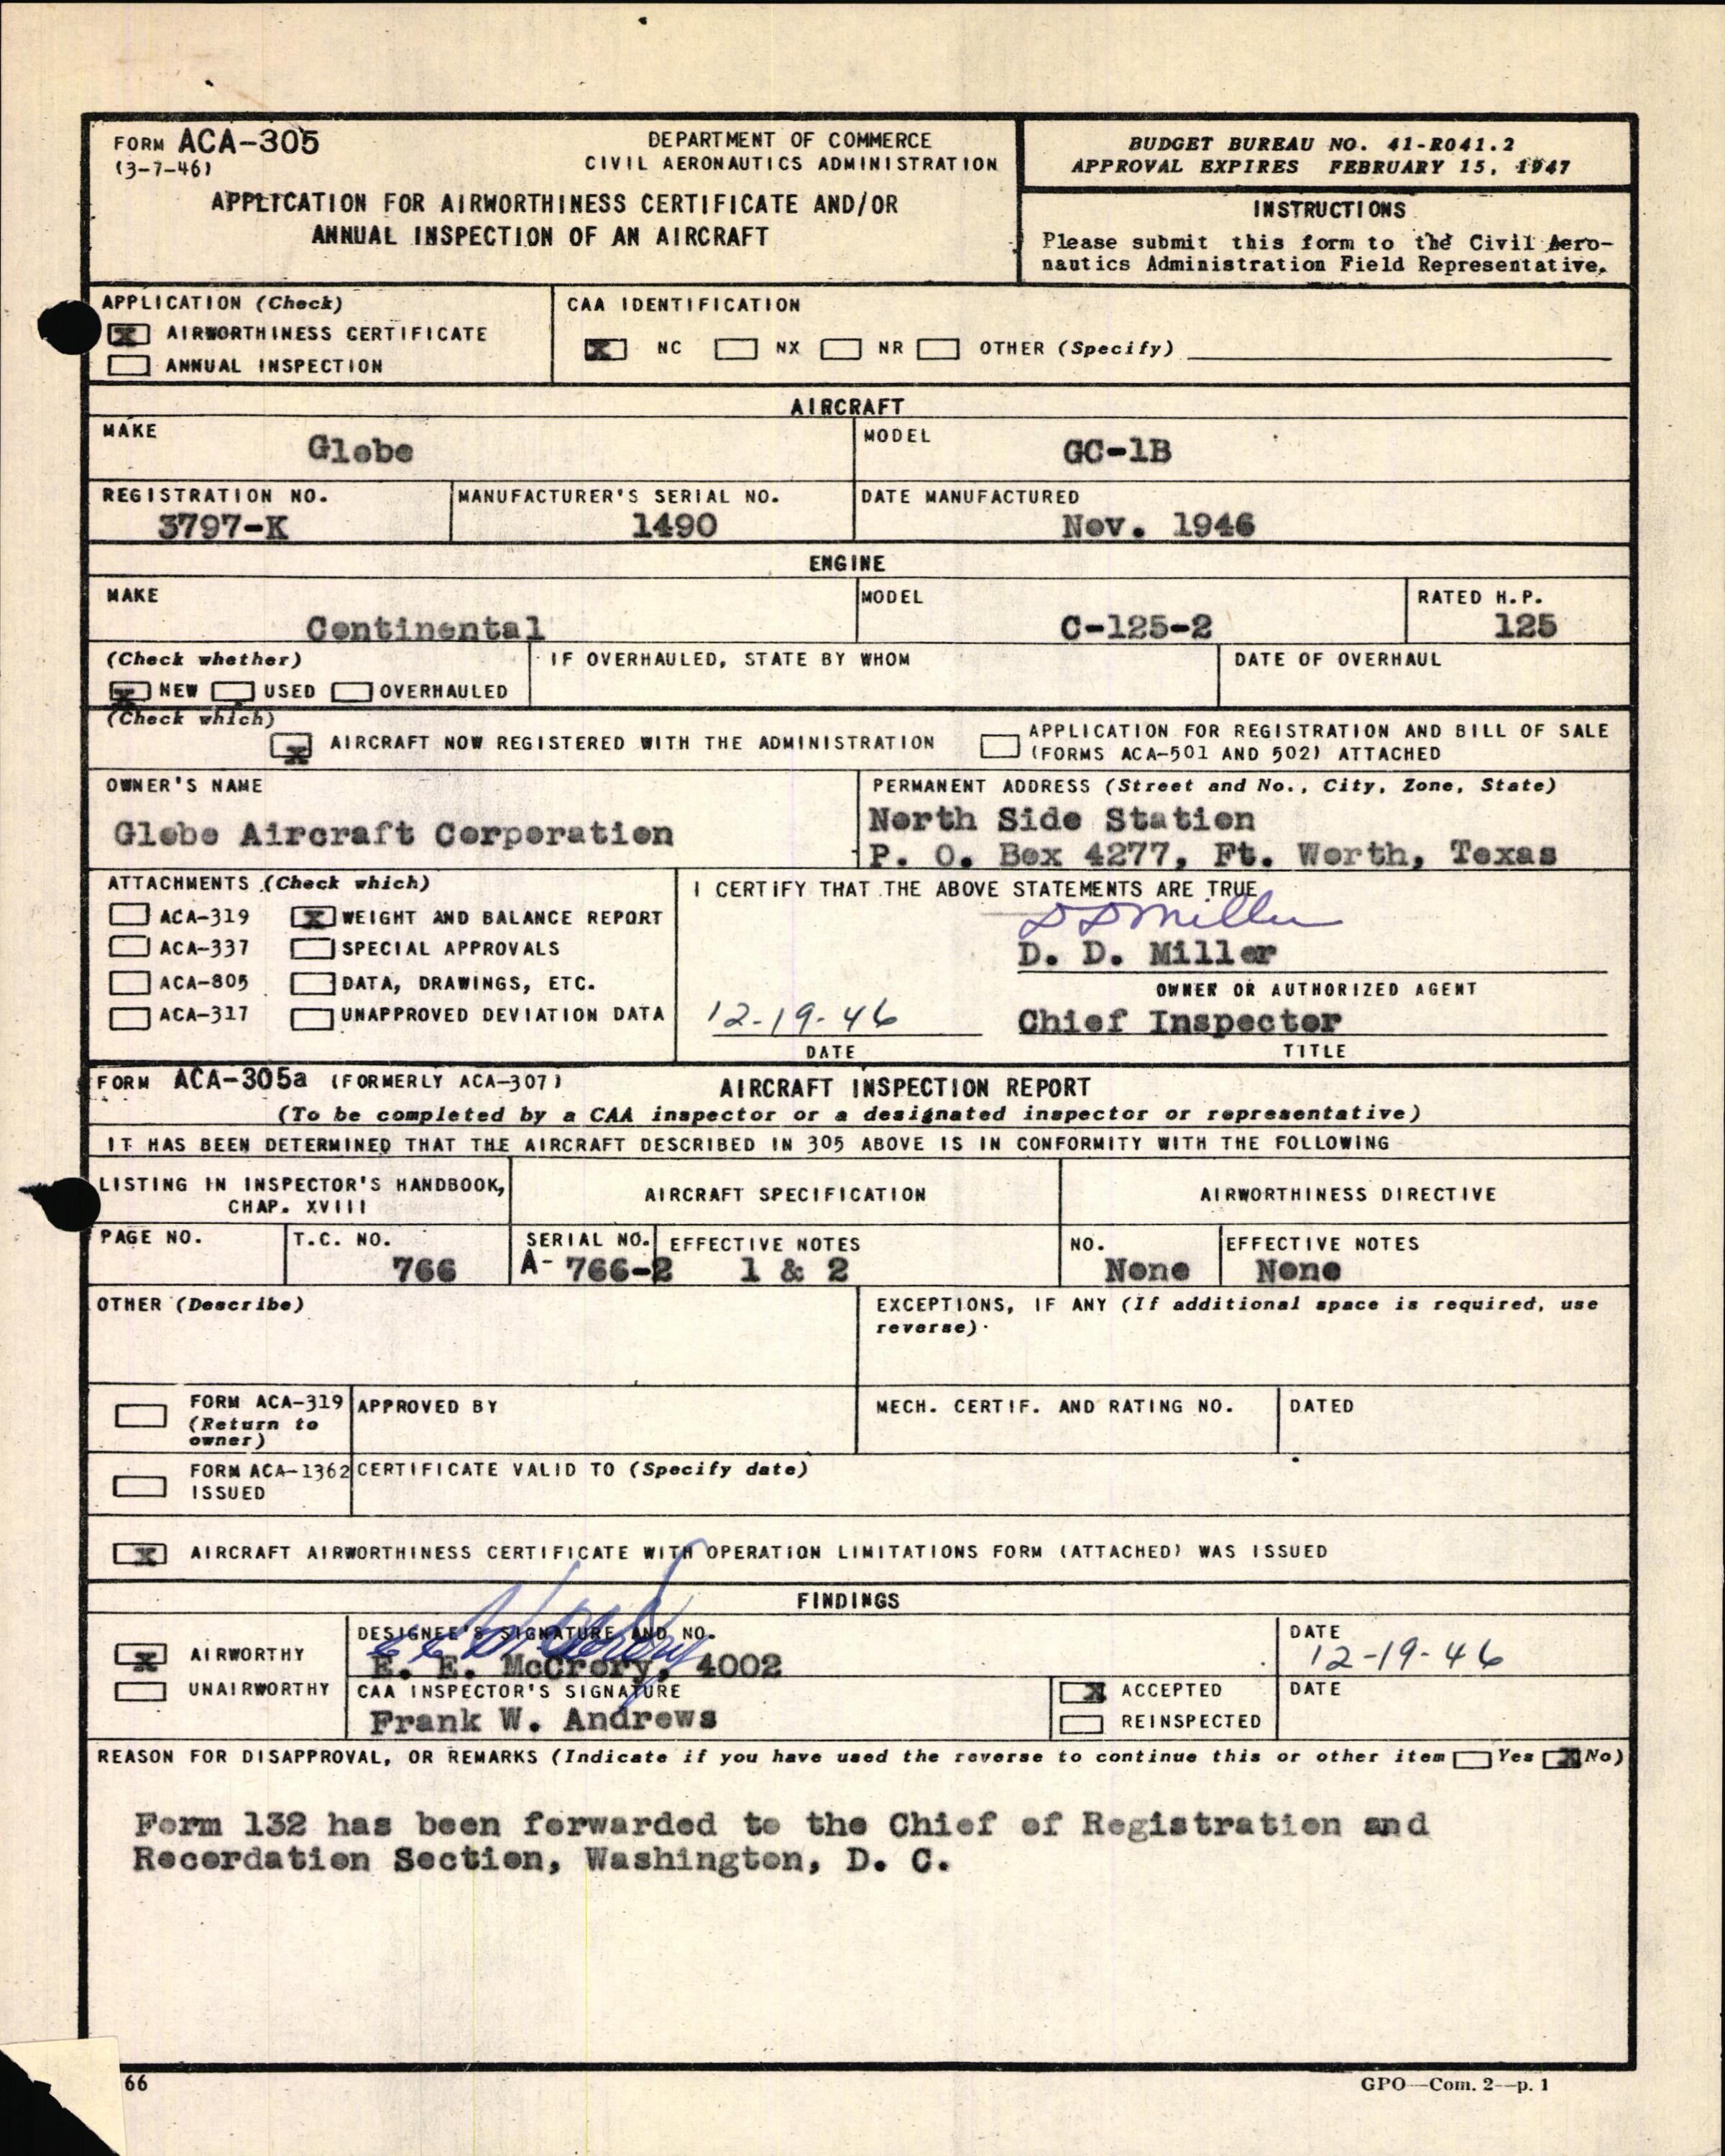 FORM ACA-305
(3-7-46)
DEPARTMENT OF COMMERCE
CIVIL AERONAUTICS ADMINISTRATION
APPLICATION FOR AIRWORTHINESS CERTIFICATE AND/OR
ANNUAL INSPECTION OF AN AIRCRAFT
BUDGET BUREAU NO. 41-R041.2
APPROVAL EXPIRES FEBRUARY 15, 1947
INSTRUCTIONS
Please submit this form to the Civil Aero-
nautics Administration Field Representative.
APPLICATION (Check)
X AIRWORTHINESS CERTIFICATE
ANNUAL INSPECTION
CAA IDENTIFICATION
X NC NX NR OTHER (Specify)
AIRCRAFT
MAKE
Globe
MODEL
GC-1B
REGISTRATION NO.
3797-K
MANUFACTURER'S SERIAL NO.
1490
DATE MANUFACTURED
Nov. 1946
ENGINE
MAKE
Continental
MODEL
C-125-2
RATED H.P.
125
(Check whether)
X NEW USED OVERHAULED
IF OVERHAULED, STATE BY WHOM
DATE OF OVERHAUL
(Check which)
X AIRCRAFT NOW REGISTERED WITH THE ADMINISTRATION
APPLICATION FOR REGISTRATION AND BILL OF SALE
(FORMS ACA-501 AND 502) ATTACHED
OWNER'S NAME
Globe Aircraft Corporation
PERMANENT ADDRESS (Street and No., City, Zone, State)
North Side Station
P. O. Box 4277, Ft. Worth, Texas
ATTACHMENTS (Check which)
ACA-319 X WEIGHT AND BALANCE REPORT
ACA-337 SPECIAL APPROVALS
ACA-805 DATA, DRAWINGS, ETC.
ACA-317 UNAPPROVED DEVIATION DATA
I CERTIFY THAT THE ABOVE STATEMENTS ARE TRUE
D D Miller
D. D. Miller
OWNER OR AUTHORIZED AGENT
12-19-46 Chief Inspector
DATE TITLE
FORM ACA-305a (FORMERLY ACA-307) AIRCRAFT INSPECTION REPORT
(To be completed by a CAA inspector or a designated inspector or representative)
IT HAS BEEN DETERMINED THAT THE AIRCRAFT DESCRIBED IN 305 ABOVE IS IN CONFORMITY WITH THE FOLLOWING
LISTING IN INSPECTOR'S HANDBOOK,
CHAP. XVIII
AIRCRAFT SPECIFICATION
AIRWORTHINESS DIRECTIVE
PAGE NO.
T.C. NO.
766
SERIAL NO.
A- 766-2
EFFECTIVE NOTES
1 & 2
NO.
None
EFFECTIVE NOTES
None
OTHER (Describe)
EXCEPTIONS, IF ANY (If additional space is required, use
reverse)
FORM ACA-319
(Return to
owner)
APPROVED BY
MECH. CERTIF. AND RATING NO.
DATED
FORM ACA-1362
ISSUED
CERTIFICATE VALID TO (Specify date)
X AIRCRAFT AIRWORTHINESS CERTIFICATE WITH OPERATION LIMITATIONS FORM (ATTACHED) WAS ISSUED
FINDINGS
X AIRWORTHY
UNAIRWORTHY
DESIGNEE'S SIGNATURE AND NO.
E E McCrory
E. E. McCrory, 4002
DATE
12-19-46
CAA INSPECTOR'S SIGNATURE
Frank W. Andrews
X ACCEPTED
REINSPECTED
DATE
REASON FOR DISAPPROVAL, OR REMARKS (Indicate if you have used the reverse to continue this or other item Yes X No)
Form 132 has been forwarded to the Chief of Registration and
Recordation Section, Washington, D. C.
66
GPO—Com. 2—p. 1